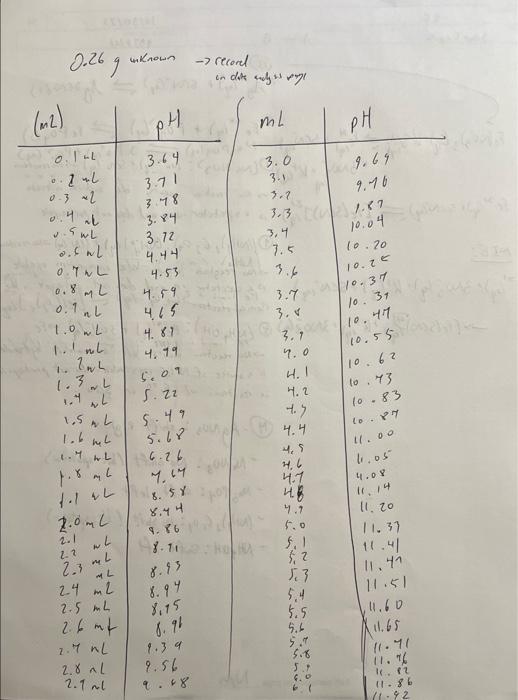 0.26 g unknown → record
in data analysis page
(mL) pH
0.1 mL 3.64
0.2 mL 3.71
0.3 mL 3.78
0.4 mL 3.84
0.5 mL 3.72
0.6 mL 4.44
0.7 mL 4.53
0.8 mL 4.59
0.9 mL 4.65
1.0 mL 4.87
1.1 mL 4.99
1.2 mL 5.09
1.3 mL 5.22
1.4 mL 5.49
1.5 mL 5.68
1.6 mL 6.26
1.7 mL 7.67
1.8 mL 8.58
1.9 mL 8.44
2.0 mL 8.86
2.1 mL 8.91
2.2 mL 8.93
2.3 mL 8.94
2.4 mL 8.95
2.5 mL 8.96
2.6 mL 9.39
2.7 mL 9.56
2.8 mL 9.68
2.9 mL
mL pH
3.0 9.69
3.1 9.76
3.2 9.87
3.3 10.04
3.4 10.20
3.5 10.25
3.6 10.37
3.7 10.39
3.8 10.47
3.9 10.55
4.0 10.62
4.1 10.73
4.2 10.83
4.3 10.87
4.4 11.00
4.5 11.05
4.6 4.08
4.7 11.14
4.8 11.20
4.9 11.37
5.0 11.41
5.1 11.47
5.2 11.51
5.3 11.60
5.4 11.65
5.5 11.71
5.6 11.76
5.7 11.82
5.8 11.86
5.9 11.92
6.0
6.1